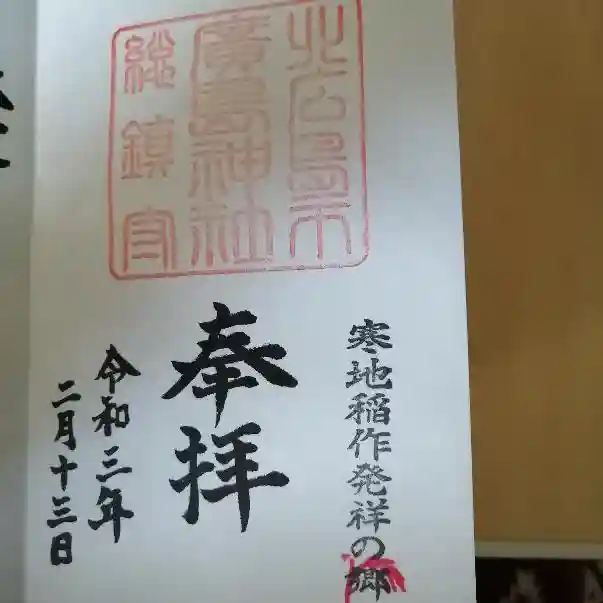 北広島市
廣島神社
総鎮守
寒地稲作発祥の郷
奉拝
令和三年
二月十三日